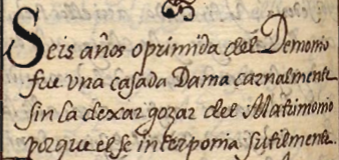 Seis años oprimida del Demonio
fue vna casada Dama carnalmente
sin la dexar gozar del Matrimonio
porque el se interponia sutilmente.